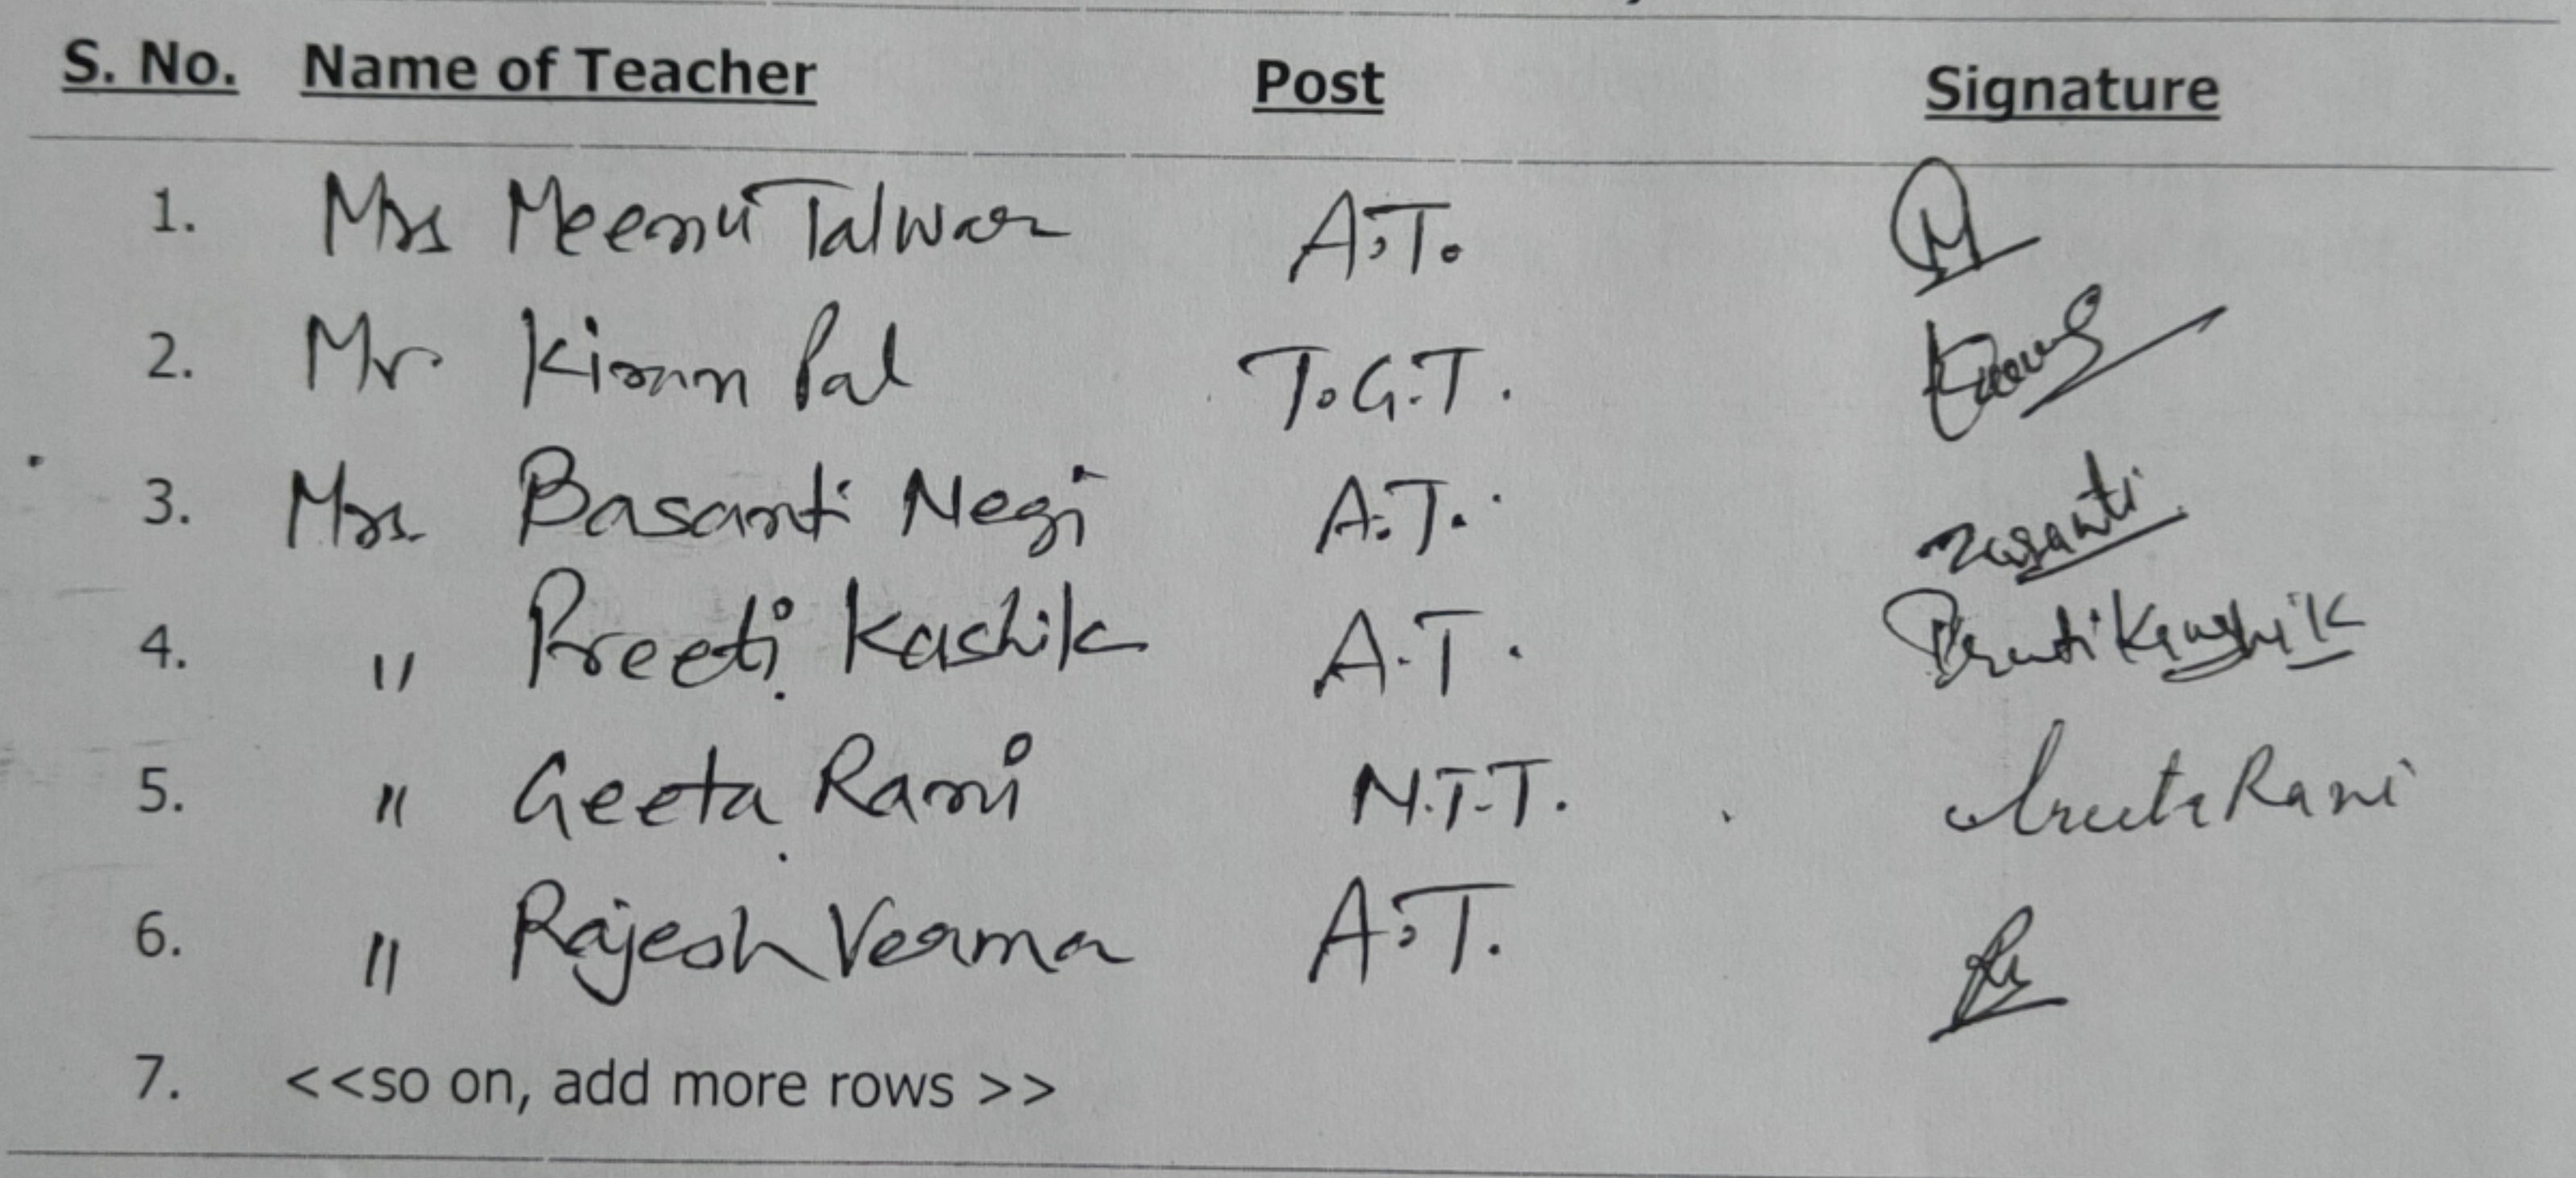 S. No. Name of Teacher Post Signature
1. Mrs Meenu Talwar A.T.
2. Mr Kiran Pal T.G.T.
3. Mrs. Basanti Negi A.T. Basanti
4. " Preeti Kashik A.T. Preeti Kaushik
5. " Geeta Rani N.T.T. Geeta Rani
6. " Rajesh Verma A.T.
7. <<so on, add more rows >>